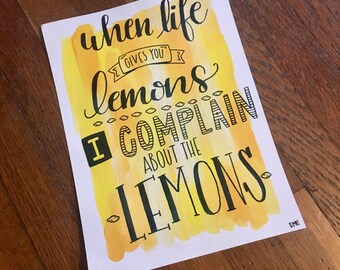 when life
"GIVES YOU"
lemons
I COMPLAIN
ABOUT THE
LEMONS
EME